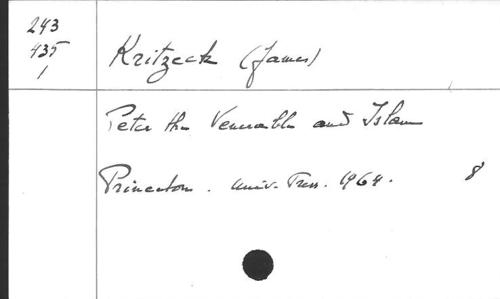 243
435
1
Kritzeck (James)
Peter the Venerable and Islam
Princeton. Univ. Press. 1964. 8